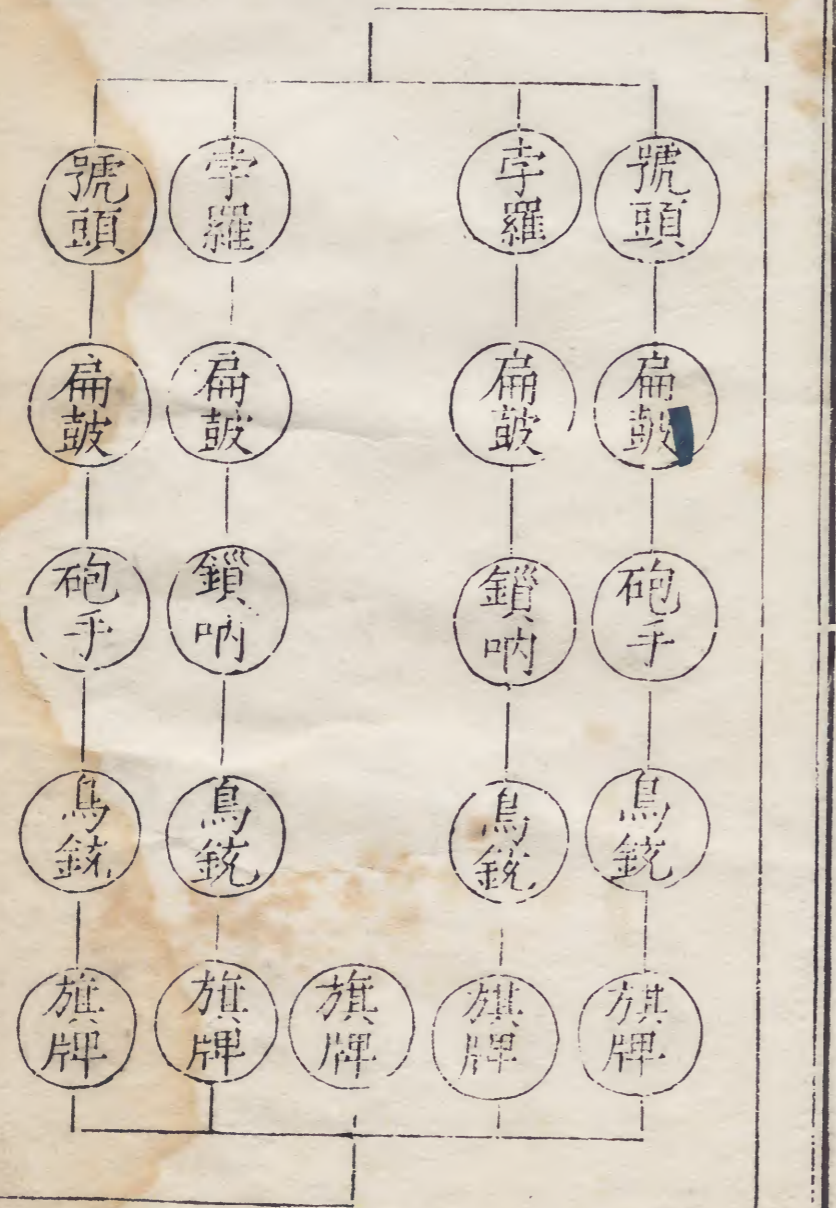 號頭
孛羅
孛羅
號頭
扁鼓
扁鼓
扁鼓
扁鼓
砲手
鎖吶
鎖吶
砲手
鳥銃
鳥銃
鳥銃
鳥銃
旗牌
旗牌
旗牌
旗牌
旗牌